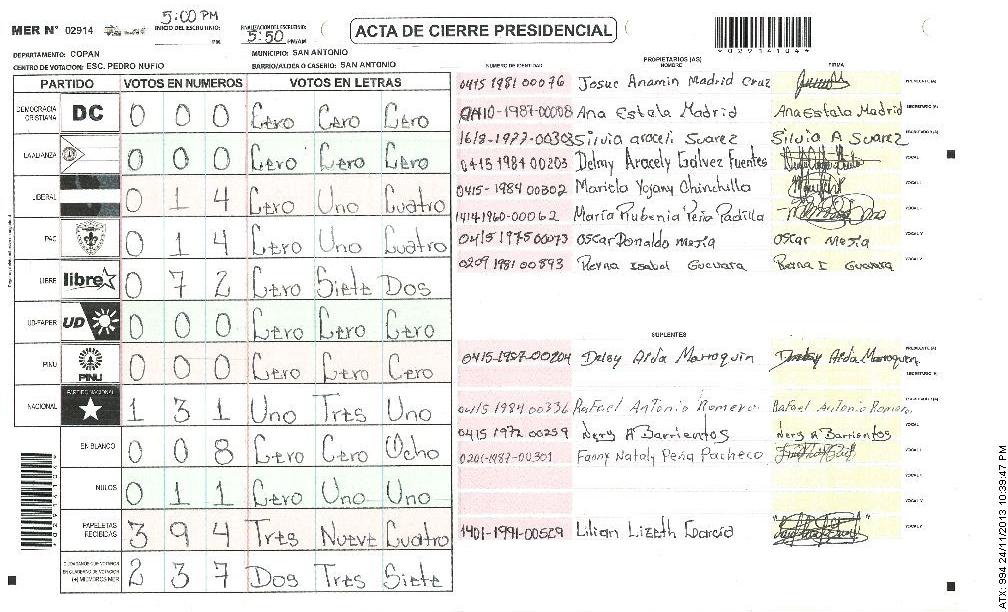 MER N° 02914
5:00 PM
INICIO DEL ESCRUTINIO:
PM
5:50
PM/AM
ACTA DE CIERRE PRESIDENCIAL
DEPARTAMENTO: COPAN
MUNICIPIO: SAN ANTONIO
CENTRO DE VOTACION: ESC. PEDRO NUFIO
BARRIO/ALDEA O CASERIO: SAN ANTONIO
PARTIDO VOTOS EN NUMEROS VOTOS EN LETRAS
DEMOCRACIA CRISTIANA DC 0 0 0 Cero Cero Cero
LA ALIANZA 0 0 0 Cero Cero Cero
LIBERAL 0 1 4 Cero Uno Cuatro
PAC 0 1 4 Cero Uno Cuatro
LIBRE libre 0 7 2 Cero Siete Dos
UD-FAPER UD 0 0 0 Cero Cero Cero
PINU PINU 0 0 0 Cero Cero Cero
NACIONAL PARTIDO NACIONAL 1 3 1 Uno Tres Uno
EN BLANCO 0 0 8 Cero Cero Ocho
NULOS 0 1 1 Cero Uno Uno
PAPELETAS RECIBIDAS 3 9 4 Tres Nueve Cuatro
(+) MIEMBROS MER 2 3 7 Dos Tres Siete
PROPIETARIOS (AS)
NUMERO DE IDENTIDAD NOMBRE FIRMA
0415 1981 00076 Josue Anamin Madrid Cruz PRESIDENTE (A)
0410-1987-00008 Ana Estela Madrid Ana Estela Madrid SECRETARIO (A)
1618-1977-00303 Silvia aroceli Suarez Silvia A Suarez
0415 1984 00203 Delmy Aracely Galvez Fuentes VOCAL I
0415-1984 00302 Mariela Yojany Chinchilla
1414 1960-00062 María Rubenia Peña Padilla
0415 1975 00073 Oscar Donaldo mejia Oscar Mejia VOCAL V
0209 1981 00893 Reyna Isabel Guevara Reyna I Guevara
SUPLENTES
0415-1987-00204 Delsy Aida Marroquin Delsy Aida Marroquin PRESIDENTE (A)
SECRETARIO (A)
0415 1984 00336 Rafael Antonio Romero Rafael Antonio Romero
0415 1972 00259 Nery A Barrientos Nery A Barrientos
0201-1987-00301 Fanny Nataly Peña Pacheco
VOCAL V
1401-1991-00529 Lilian Lizeth García
ATX: 994 24/11/2013 10:39:47 PM